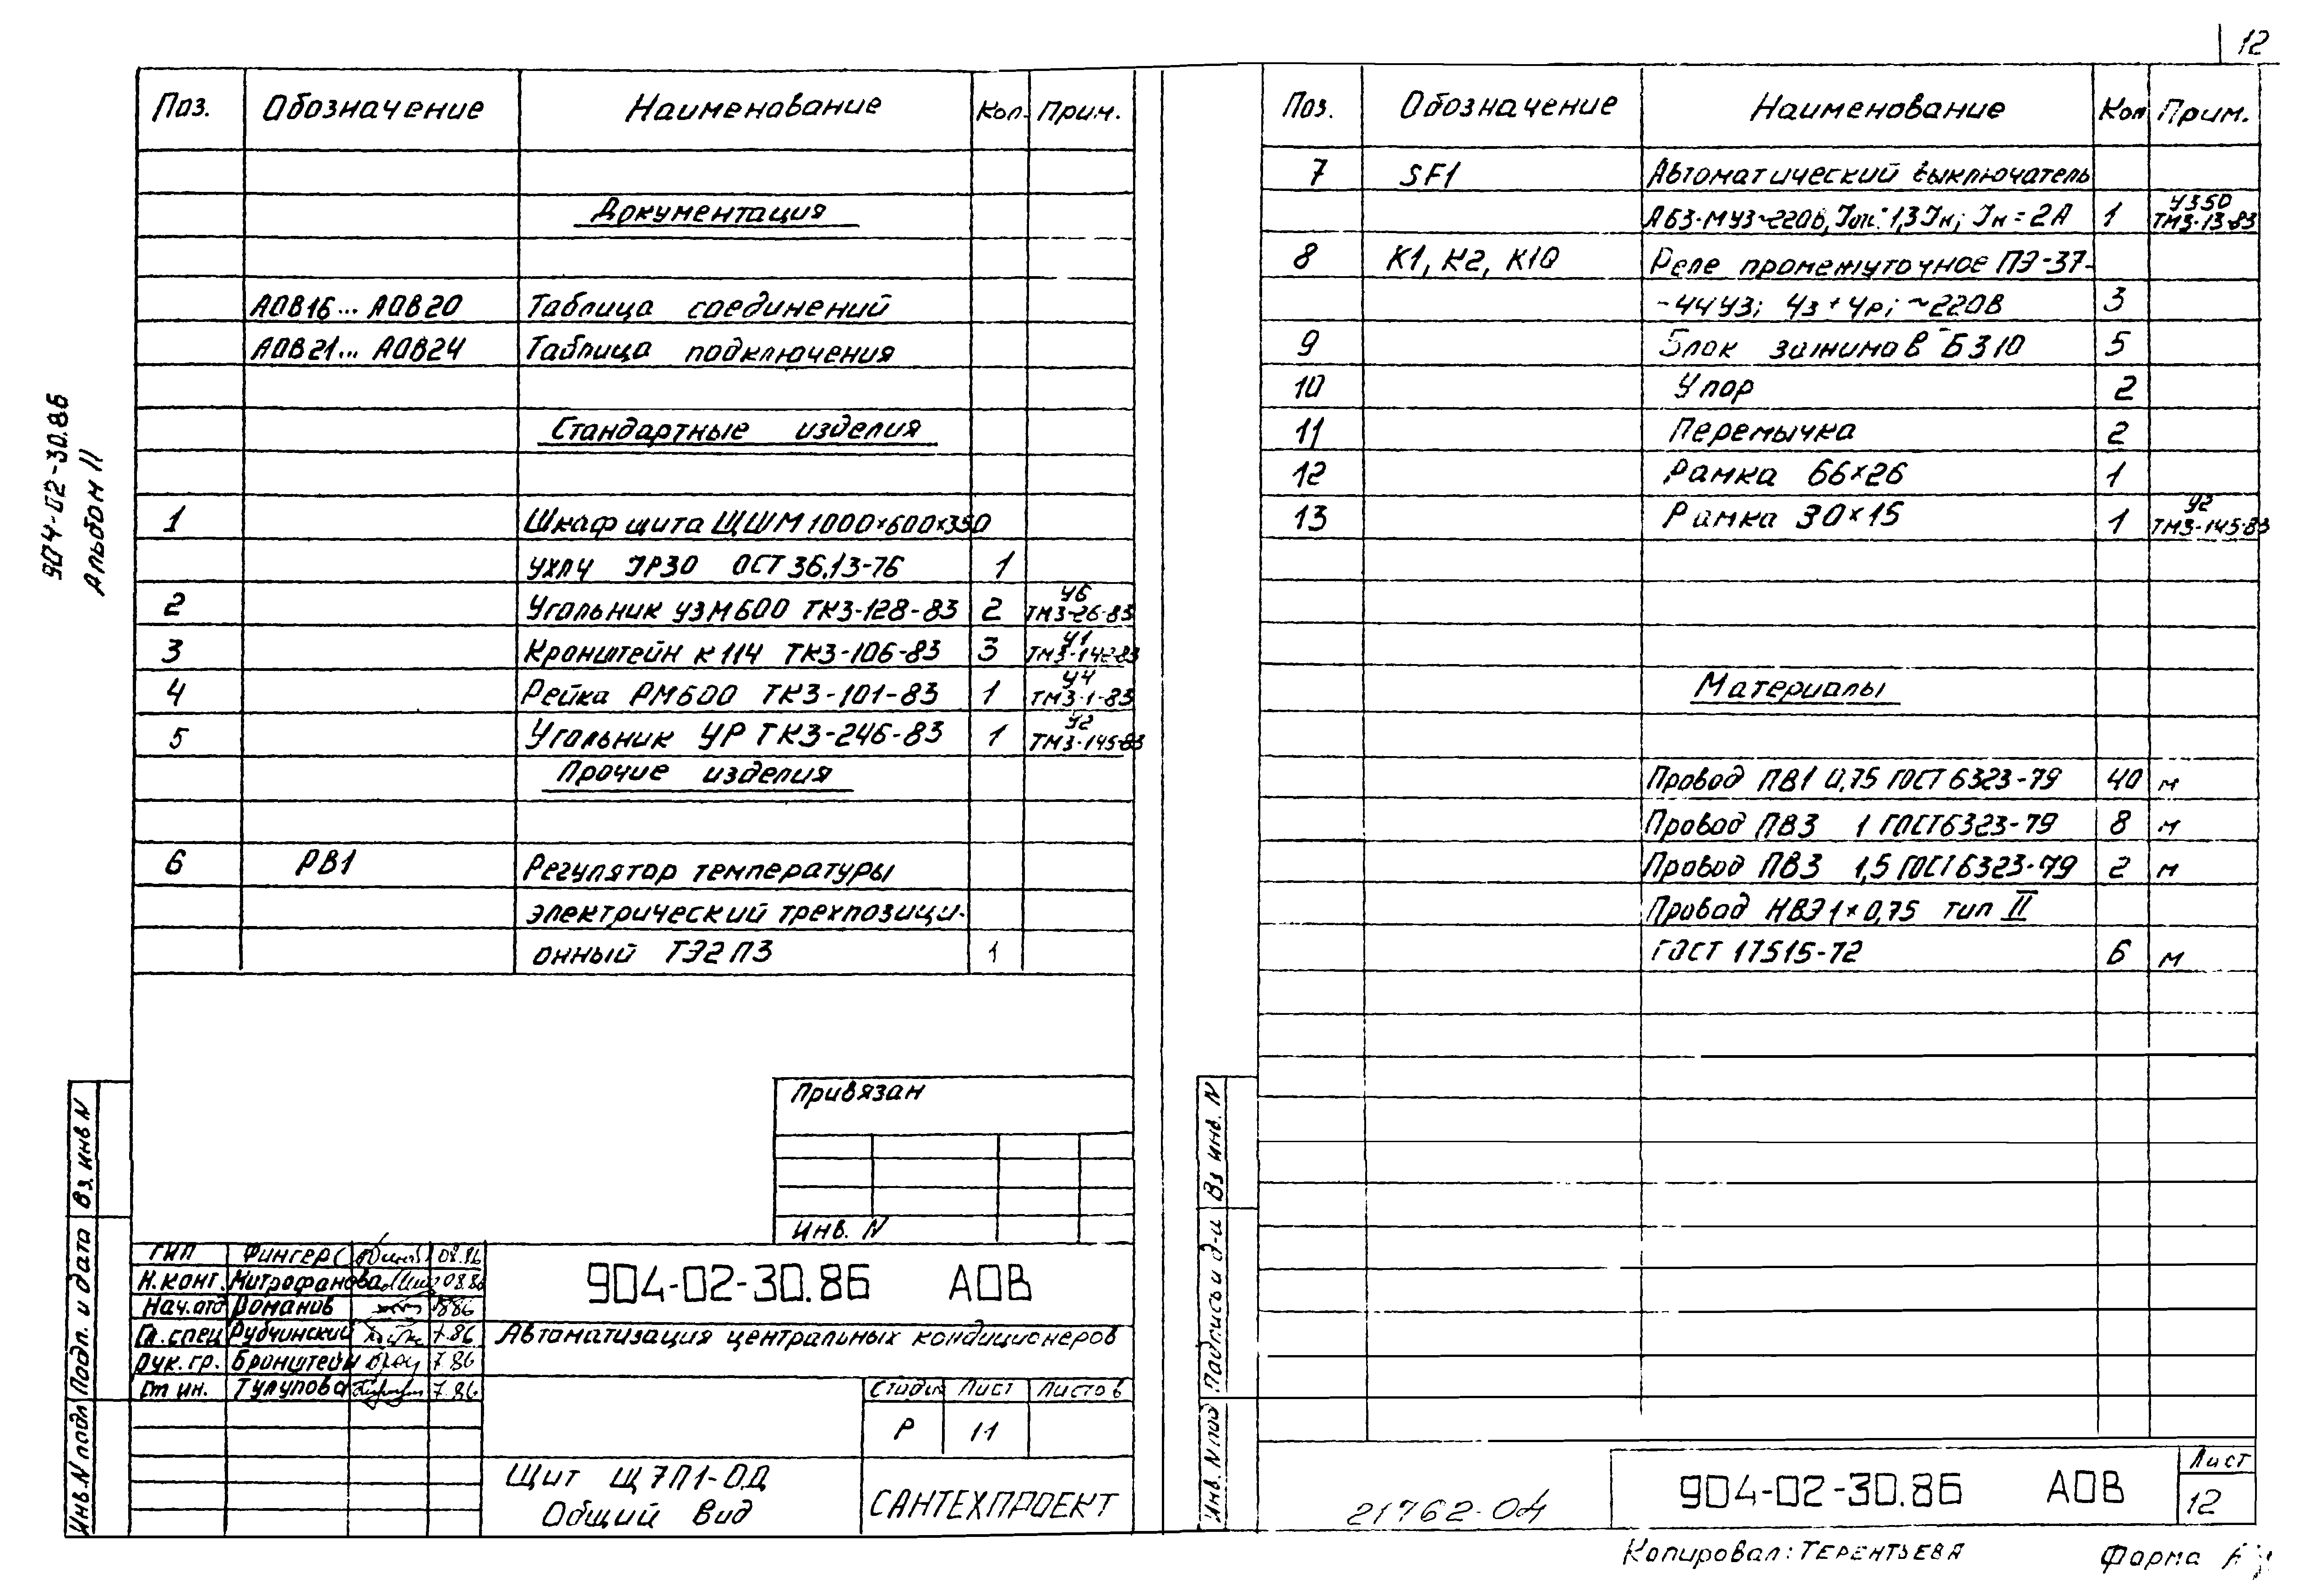 12
904-02-30.86
Альбом II
Поз. Обозначение Наименование Кол. Прим.
Документация
АОВ16... АОВ20 Таблица соединений
АОВ21... АОВ24 Таблица подключения
Стандартные изделия
1 Шкаф щита ЩШМ 1000×600×350
УХЛ4 IP30 ОСТ 36.13-76 1
2 Угольник УЗМ600 ТК3-128-83 2 У6 ТМ3-26-83
3 Кронштейн К114 ТК3-106-83 3 У1 ТМ3-142-83
4 Рейка РМ600 ТК3-101-83 1 У4 ТМ3-1-83
5 Угольник УР ТК3-246-83 1 У2 ТМ3-145-83
Прочие изделия
6 РВ1 Регулятор температуры
электрический трехпозици-
онный ТЭ2П3 1
Привязан
Инв. N
ГИП Фингер 08.86
Н.конт. Митрофанова 08.86
Нач.отд Романов 886
Гл.спец Рубчинский 7.86
Рук.гр. Бронштейн 7.86
Ст ин. Тулупова 7.86
904-02-30.86 АОВ
Автоматизация центральных кондиционеров
Стадия Лист Листов
Р 11
Щит Щ7П1-ОД
Общий вид
САНТЕХПРОЕКТ
Инв.N подл Подл. и дата Вз.инв N
Поз. Обозначение Наименование Кол Прим.
7 SF1 Автоматический выключатель
А63-МУ3~220В, Iотс. 1,3Iн; Iн=2А 1 У350 ТМ3-13-83
8 К1, К2, К10 Реле промежуточное ПЭ-37-
-44У3; 4з+4р; ~220В 3
9 Блок зажимов БЗ10 5
10 Упор 2
11 Перемычка 2
12 Рамка 66×26 1
13 Рамка 30×15 1 У2 ТМ3-145-83
Материалы
Провод ПВ1 0,75 ГОСТ 6323-79 40 м
Провод ПВ3 1 ГОСТ 6323-79 8 м
Провод ПВ3 1,5 ГОСТ 6323-79 2 м
Провод НВЭ 1×0,75 тип II
ГОСТ 17515-72 6 м
Инв. N под Подпись и д-а Вз инв. N
21762-04
904-02-30.86 АОВ
Лист
12
Копировал: Терентьева
Форма А